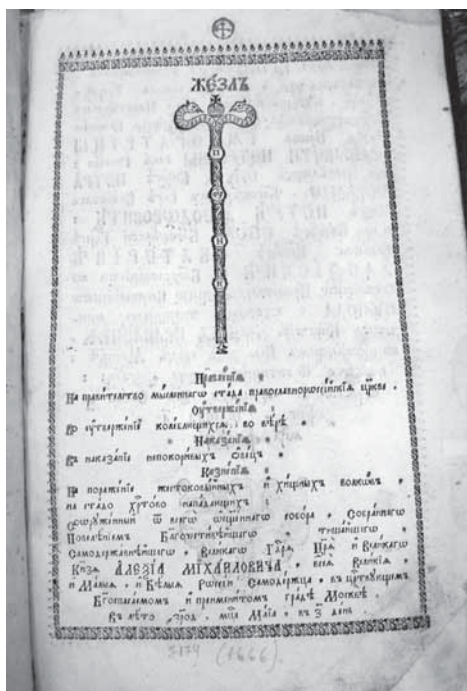 ЖЕ́ЗЛЪ
П
Н
Правле́нїѧ
На прави́тельство мы́сленнагѡ ста́да православнорѡссі́йскїѧ цр҃кве .
Оу҆тверже́нїѧ
Во оу҆твержє́нїе коле́блющихсѧ во вѣ́рѣ
Наказа́нїѧ
Въ наказа́нїе непокори́выхъ ѻ҆ве́цъ
Казне́нїѧ
На пораже́нїе жестоковы́йныхъ и҆ хи́щныхъ волкѡ́въ
на ста́до Хрⷭ҇то́во напада́ющихъ
Соѡрꙋже́нный ѿ всегѡ̀ ѡ҆сщ҃е́ннагѡ собо́ра . Собра́ннагѡ
Повелѣ́нїемъ Благочести́вѣйшагѡ тиша́йшагѡ
Самодержа́внѣйшагѡ . Вели́кагѡ Гдⷭ҇рѧ̀ Цр҃ѧ̀ и҆ Вели́кагѡ
Кн҃зѧ АЛЕѮІ́А МІХА́ИЛОВИЧА . всеѧ̀ Вели́кїѧ
и҆ Ма́лыѧ . и҆ Бѣ́лыѧ Рѡссі́и Самоде́ржца . въ црⷭ҇твꙋющемъ
Бг҃оспаса́емомъ и҆ преимени́томъ гра́дѣ Москвѣ̀
Въ лѣ́то ҂зро҃д . мцⷭ҇а Ма́їа . въ з҃ де́нь .
7174 (1666).